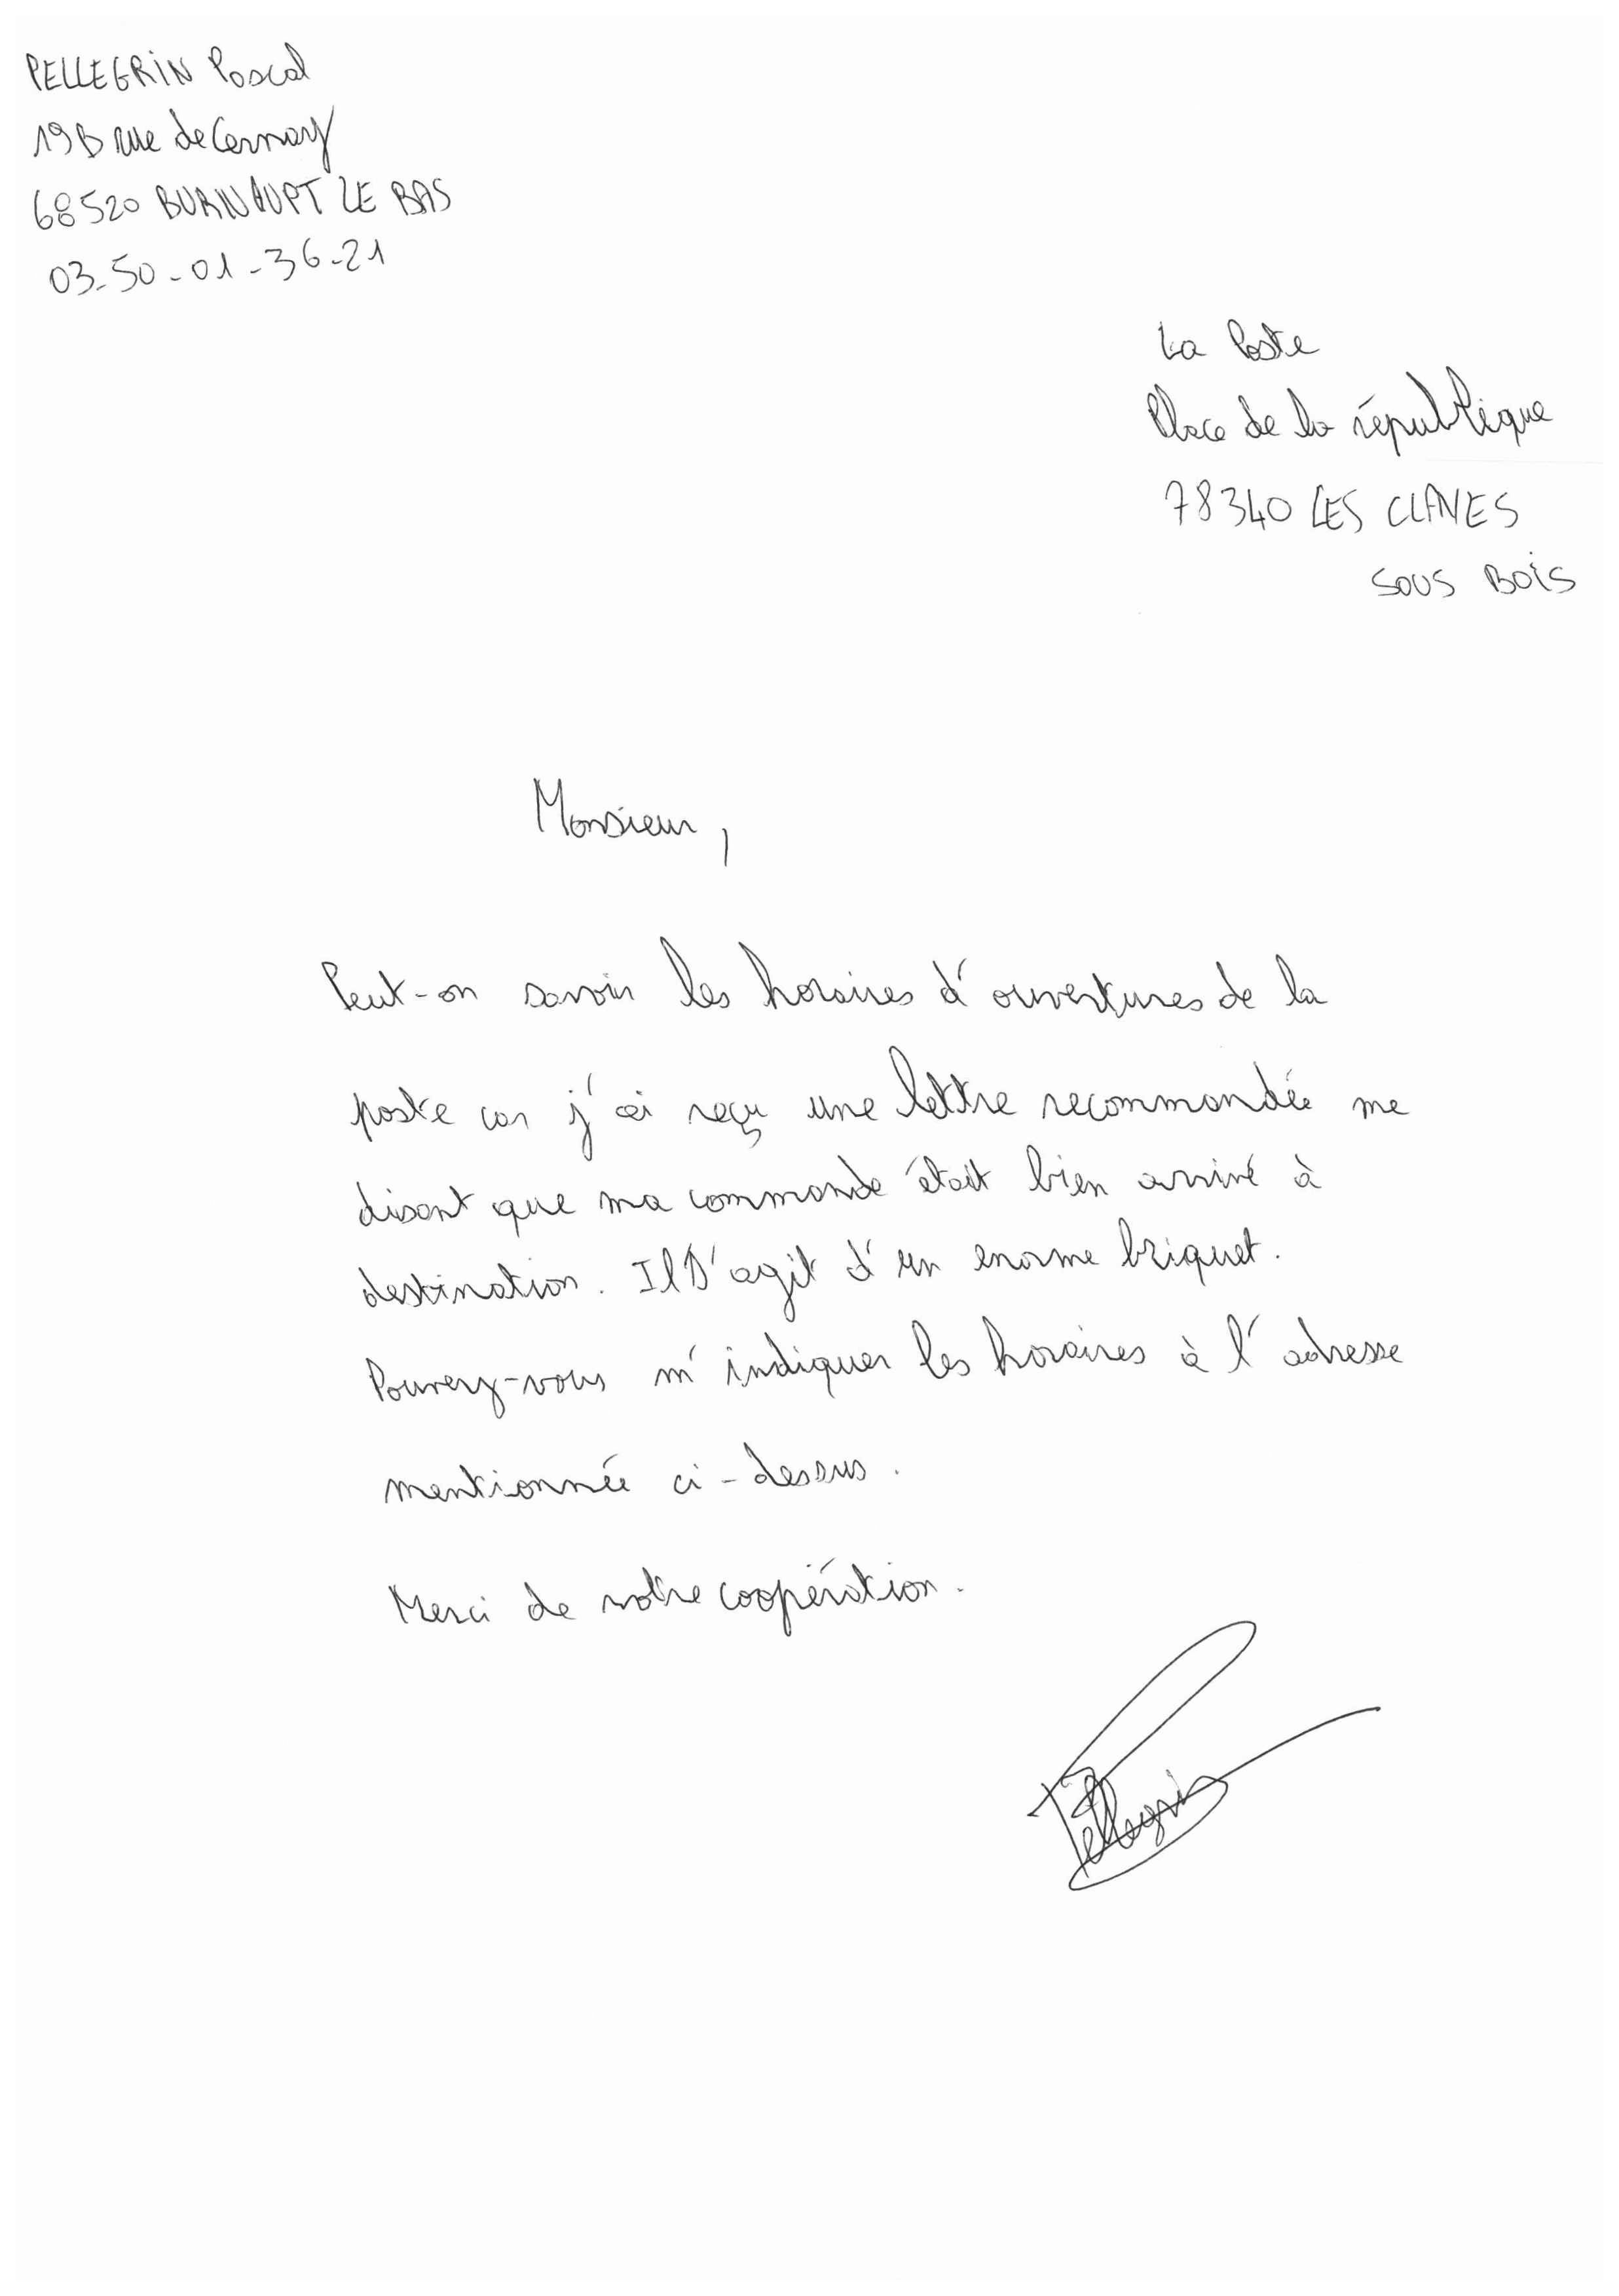 PELLEGRIN Pascal
19B rue de Cernay
68520 BURNHAUPT LE BAS
03-50-01-36-21
La Poste
Place de la république
78340 LES CLAYES
SOUS BOIS
Monsieur,
Peut-on savoir les horaires d'ouvertures de la
poste car j'ai reçu une lettre recommandée me
disant que ma commande était bien arrivé à
destination. Il s'agit d'un enorme briquet.
Pouvez-vous m'indiquer les horaires à l'adresse
mentionnée ci-dessus.
Merci de votre coopération.
Pellegrin